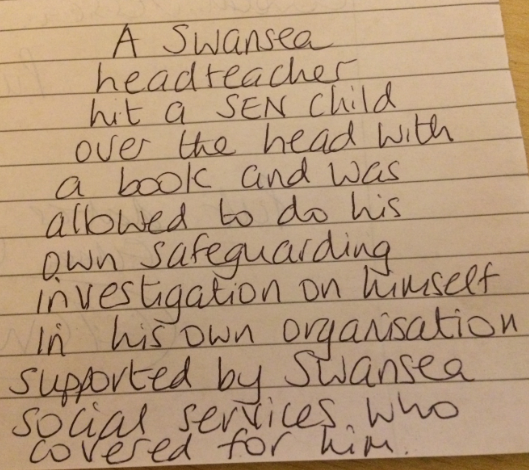 A Swansea
headteacher
hit a SEN child
over the head with
a book and was
allowed to do his
own safeguarding
investigation on himself
in his own organisation
supported by Swansea
social services who
covered for him.